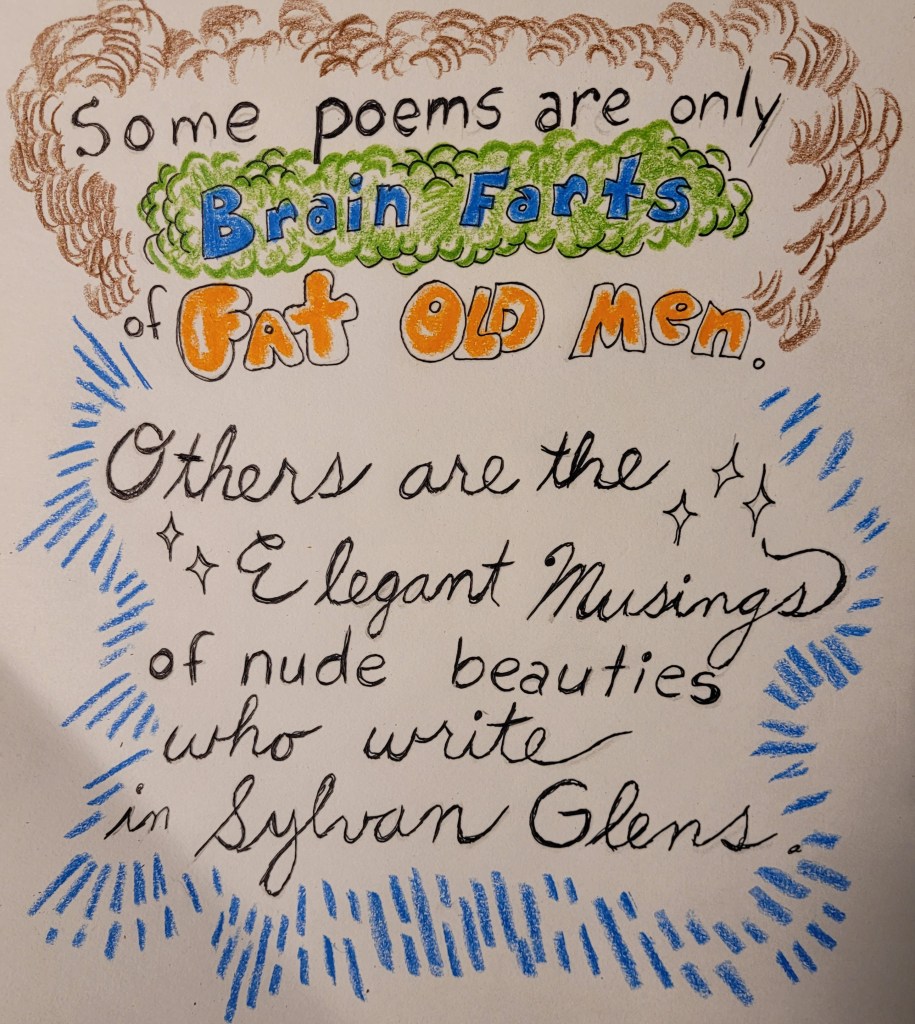 Some poems are only
Brain Farts
of FAt OLD Men.
Others are the
Elegant Musings
of nude beauties
who write
in Sylvan Glens.